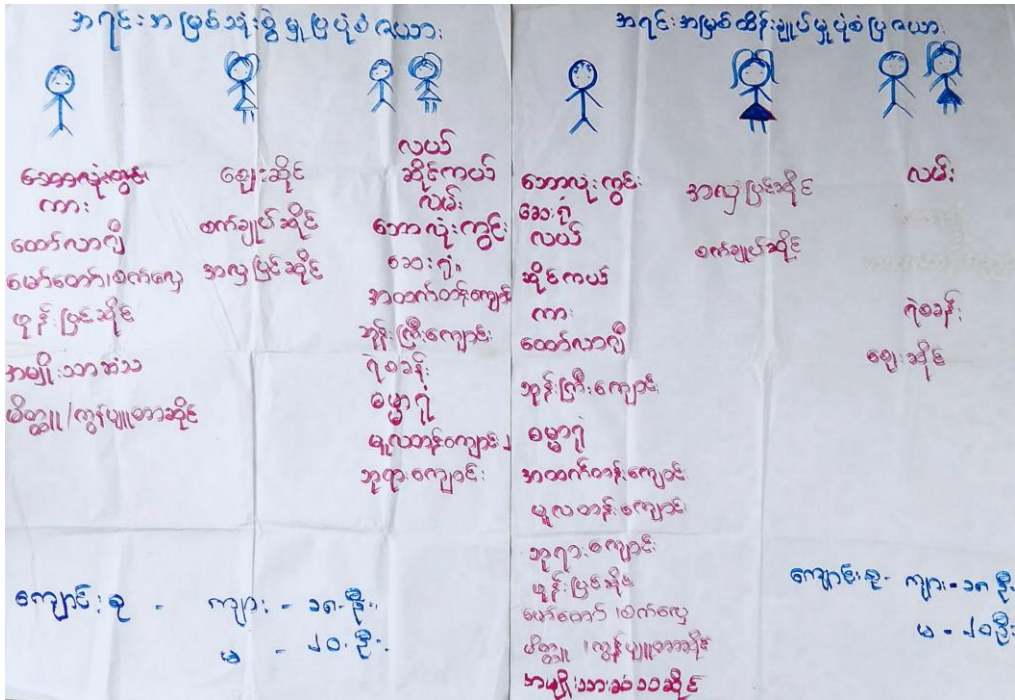 အရင်းအမြစ်သုံးစွဲမှုပြပုံစံဇယား
ဘောလုံးကွင်း
ကား
ထော်လာဂျီ
မော်တော်/စက်လှေ
ဖုန်းပြင်ဆိုင်
အမျိုးသားဆံသ
မိတ္တူ/ကွန်ပျူတာဆိုင်
ဈေးဆိုင်
စက်ချုပ်ဆိုင်
အလှပြင်ဆိုင်
လယ်
ဆိုင်ကယ်
လမ်း
ဘောလုံးကွင်း
ဆေးရုံ
အထက်တန်းကျောင်း
ဘုန်းကြီးကျောင်း
ရဲစခန်း
ဓမ္မာရုံ
မူလတန်းကျောင်း
ဘုရားကျောင်း
ကျောင်းစု - ကျား - ၁၈ ဦး
မ - ၂၀ ဦး
အရင်းအမြစ်ထိန်းချုပ်မှုပုံစံပြဇယား
ဘောလုံးကွင်း
ဆေးရုံ
လယ်
ဆိုင်ကယ်
ကား
ထော်လာဂျီ
ဘုန်းကြီးကျောင်း
ဓမ္မာရုံ
အထက်တန်းကျောင်း
မူလတန်းကျောင်း
ဘုရားကျောင်း
ဖုန်းပြင်ဆိုင်
မော်တော်/စက်လှေ
မိတ္တူ/ကွန်ပျူတာဆိုင်
အမျိုးသားဆံသဆိုင်
အလှပြင်ဆိုင်
စက်ချုပ်ဆိုင်
လမ်း
ရဲစခန်း
ဈေးဆိုင်
ကျောင်းစု - ကျား - ၁၈ ဦး
မ - ၂၀ ဦး